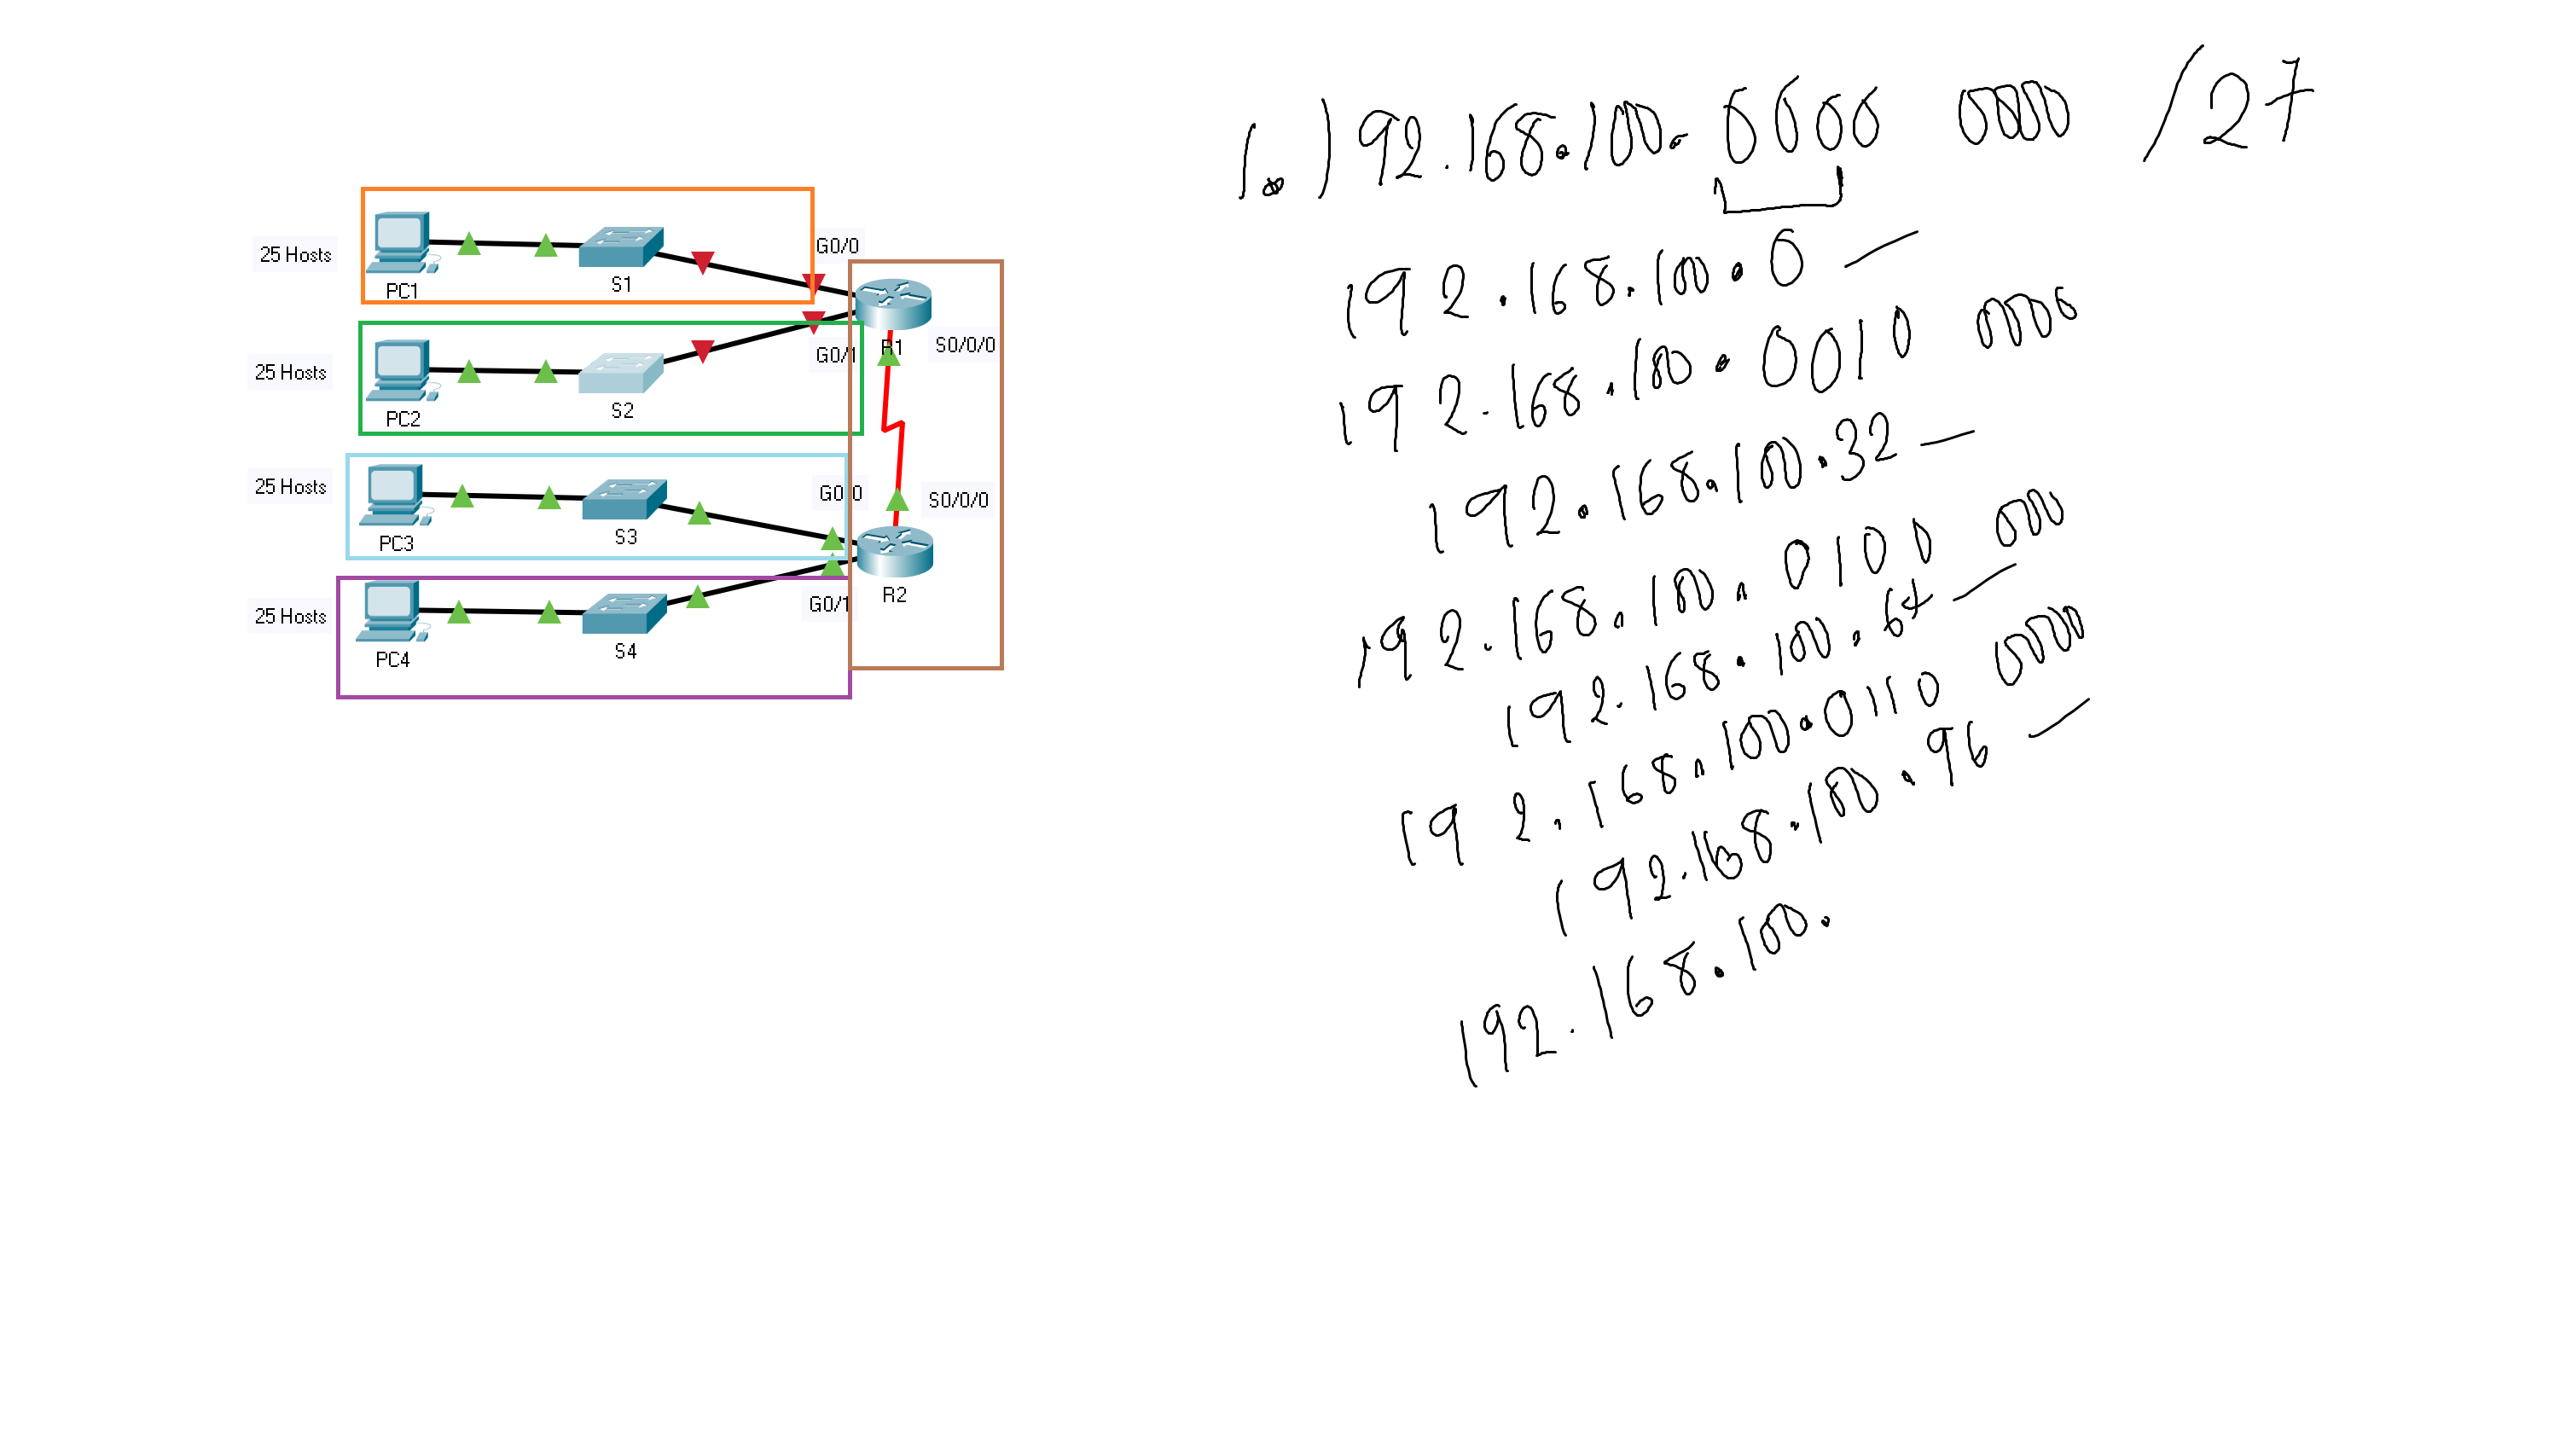 25 Hosts
PC1
S1
G0/0
R1
S0/0/0
25 Hosts
PC2
S2
G0/1
25 Hosts
PC3
S3
G0/0
S0/0/0
R2
25 Hosts
PC4
S4
G0/1
1.) 192.168.100.0000 0000 /27
192.168.100.0 —
192.168.100.0010 0000
192.168.100.32 —
192.168.100.0100 000
192.168.100.64 —
192.168.100.0110 0000
192.168.100.96 —
192.168.100.